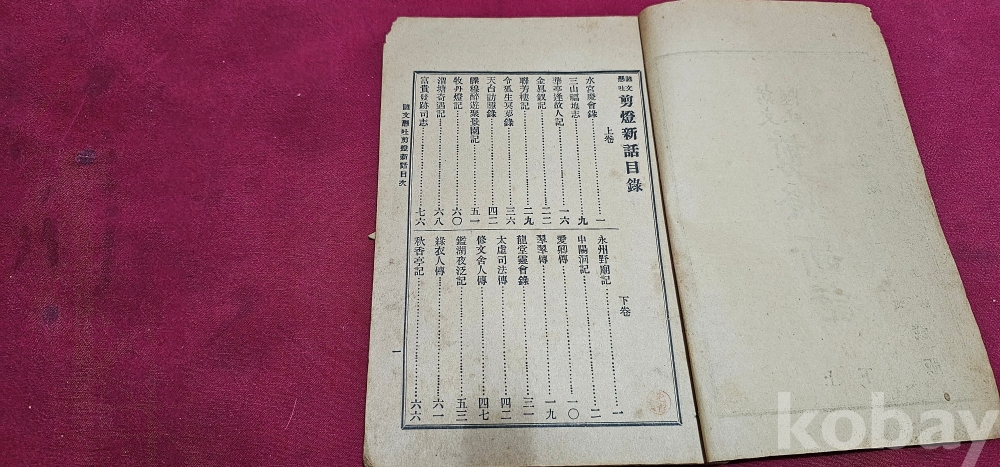 諺文懸吐 剪燈新話目錄
上卷
水宮慶會錄……一
三山福地志……九
華亭逢故人記……一六
金鳳釵記……二二
聯芳樓記……二九
令狐生冥夢錄……三六
天台訪隱錄……四二
滕穆醉遊聚景園記……五一
牧丹燈記……六〇
渭塘奇遇記……六八
富貴發跡司志……七六
下卷
永州野廟記……一
申陽洞記……二
愛卿傳……一〇
翠翠傳……一九
龍堂靈會錄……三一
太虛司法傳……四二
修文舍人傳……四七
鑑湖夜泛記……五三
綠衣人傳……六一
秋香亭記……六六
諺文懸吐剪燈新話目次
一
kobay